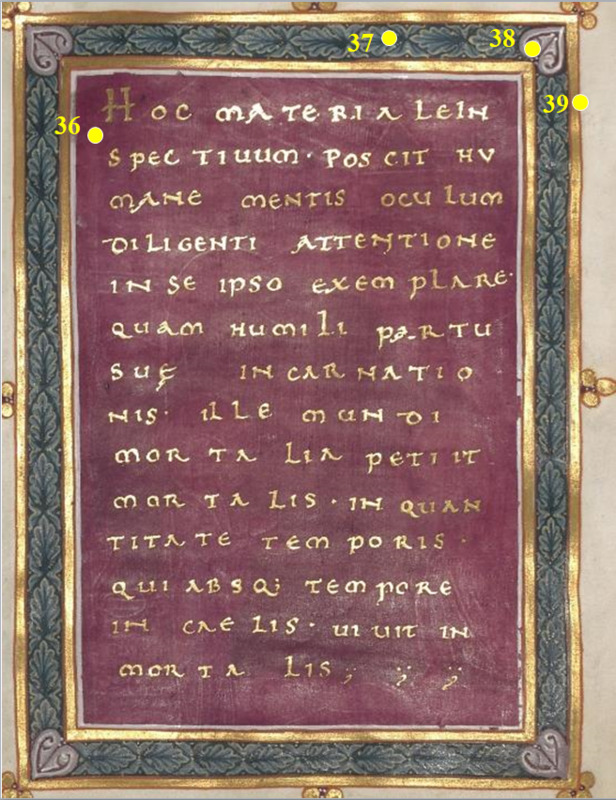 37
38
39
36
HOC MATERIALE IN
SPECTIUUM· POSCIT HV
MANE MENTIS OCULUM
DILIGENTI ATTENTIONE
IN SE IPSO EXEMPLARE·
QUAM HUMILI PARTU
SUĘ INCARNATIO
NIS· ILLE MUNDI
MORTALIA PETIIT
MORTALIS· IN QUAN
TITATE TEMPORIS·
QUI ABSQ; TEMPORE
IN CAELIS· UIUIT IN
MORTALIS;